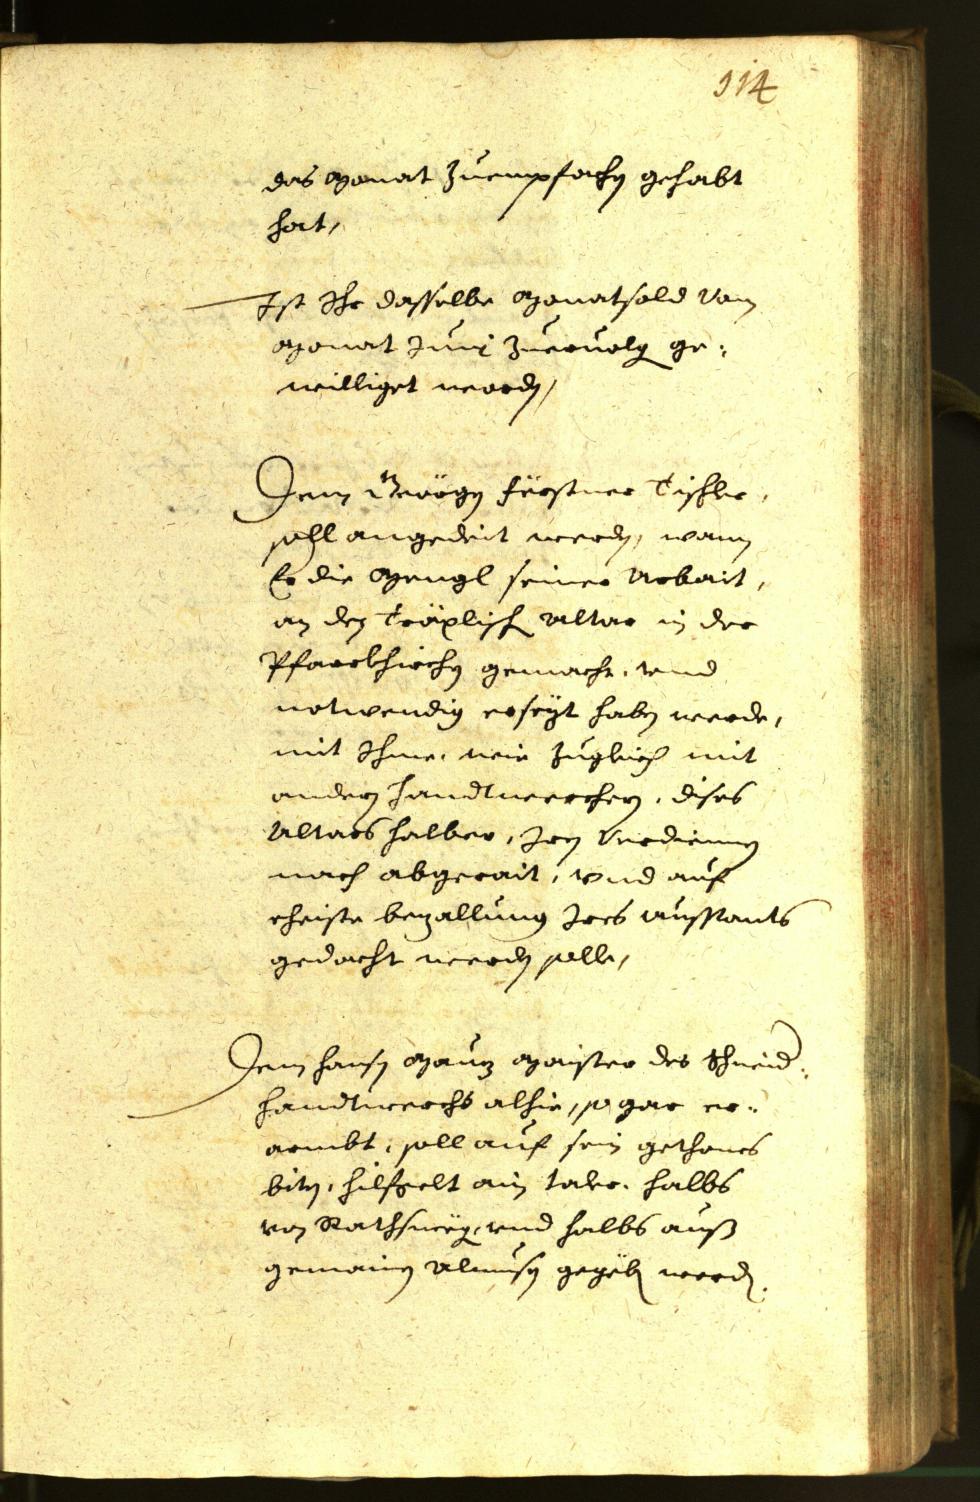 114
das Monat Zuempfachen gehabt
hat,
Ist Ihr dasselbe Monatsold vom
Monat Junj Zueruolg ge-
williget worden,
Dem Geörgen Fürstner Tischler,
soll angedeit werden, wann
Er die Mengl seiner Arbait,
an den Träxlisch Altar in der
Pfarrkhirchen gemacht, vnd
notwendig ersezt haben werde,
mit Ihme, wie Zugleich mit
andern Handtwerchern, dises
Altars halber, Irem Verdienen
nach abgerait, vnd auf
eheiste bezallung Ires ausstants
gedacht werden solle,
Dem Hansen Maister des Schneid-
handtwerchs alhie, so gar er-
armbt, soll auf sein gethones
biten, hilfgelt ain taler, halbs
von Rathswegen, vnd halbs auß
gemainen Almusen gegeben werden.